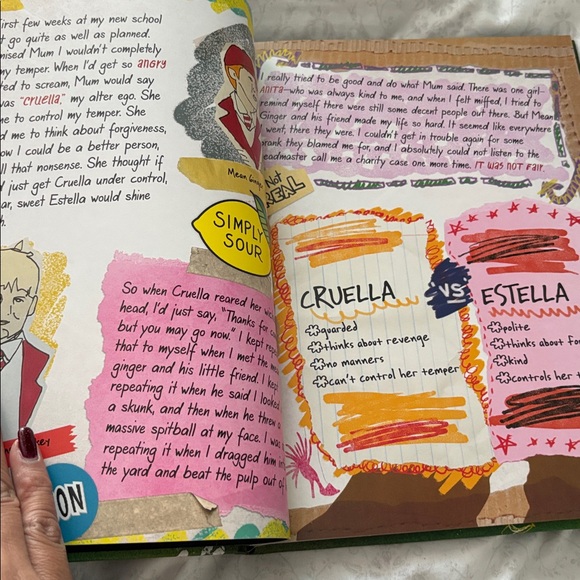 first few weeks at my new school
go quite as well as planned.
Mum I wouldn't completely
my temper. When I'd get so angry
to scream, Mum would say
was "Cruella," my alter ego. She
me to control my temper. She
me to think about forgiveness,
how I could be a better person,
all that nonsense. She thought if
just get Cruella under control,
sweet Estella would shine
Mean
SIMPLY
SOUR
NOT
REAL
So when Cruella reared her
head, I'd just say, "Thanks for
but you may go now." I kept
that to myself when I met the
ginger and his little friend. I kept
repeating it when he said I looked
a skunk, and then when he threw a
massive spitball at my face. I was
repeating it when I dragged him
the yard and beat the pulp out of
ON
I really tried to be good and do what Mum said. There was one girl—
ANITA—who was always kind to me, and when I felt miffed, I tried to
remind myself there were still some decent people out there. But Mean
Ginger and his friend made my life so hard. It seemed like everywhere
I went, there they were. I couldn't get in trouble again for some
prank they blamed me for, and I absolutely could not listen to the
headmaster call me a charity case one more time. IT WAS NOT FAIR.
CRUELLA
*guarded
*thinks about revenge
*no manners
*can't control her temper
VS
ESTELLA
*polite
*thinks about
*kind
*controls her